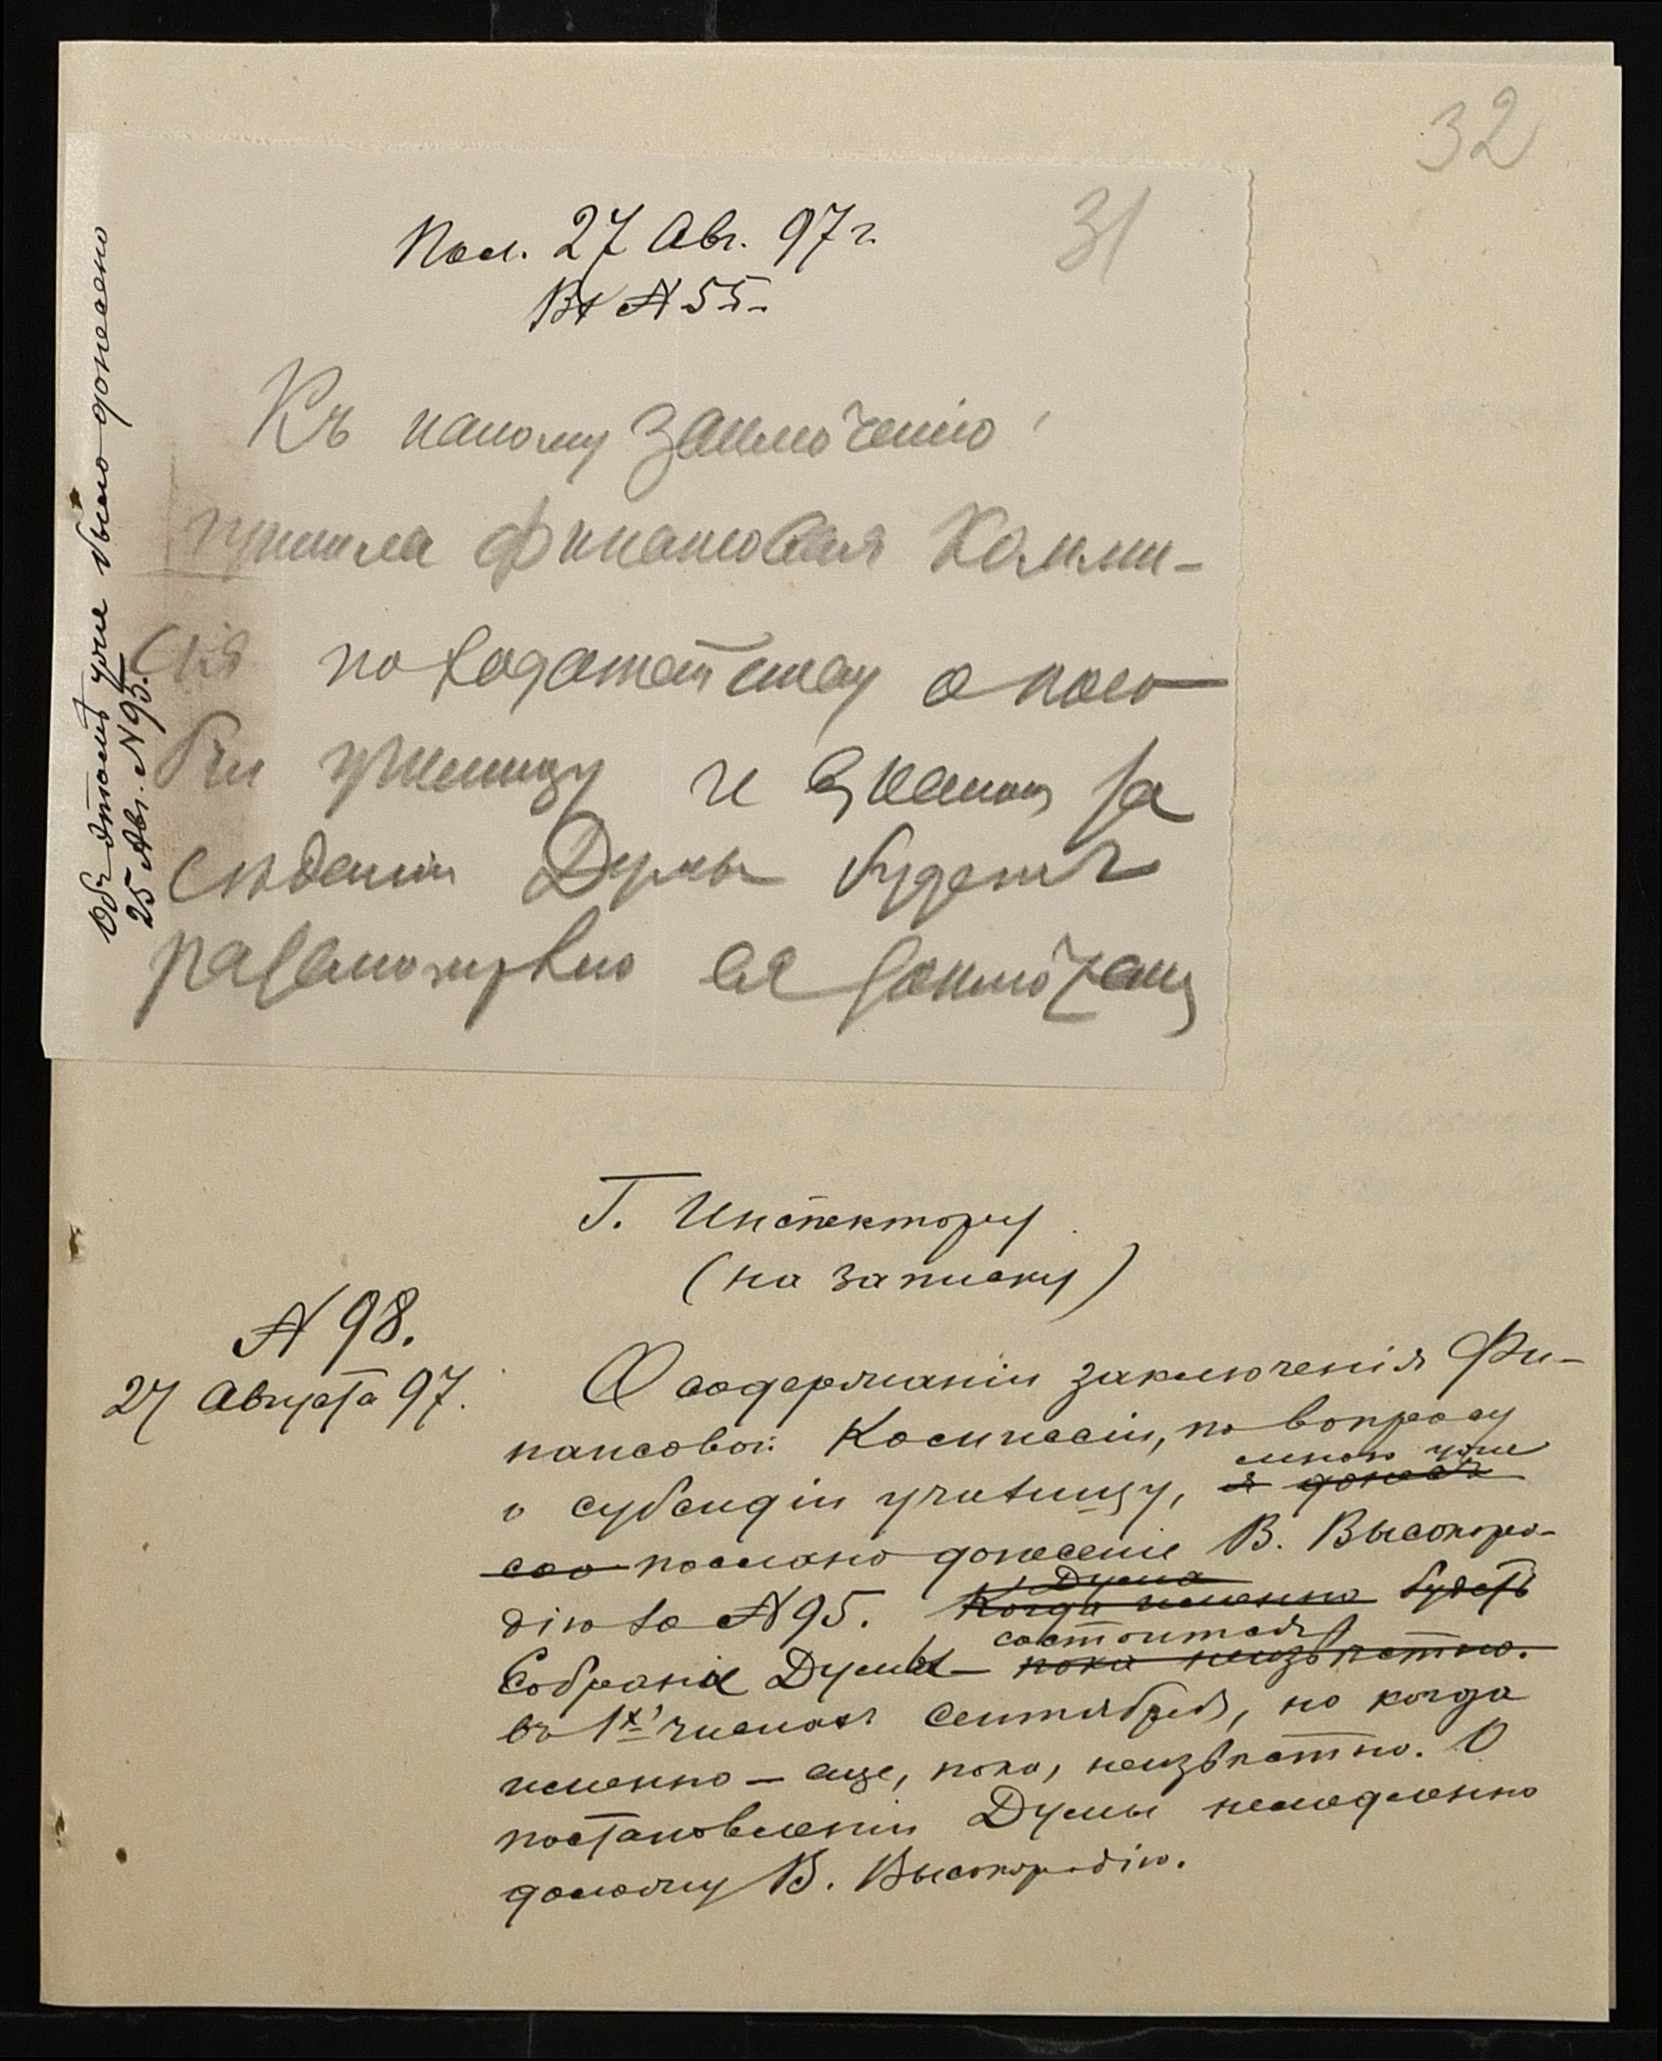 32
31
Пол. 27 Авг. 97 г.
Вх № 55.
Къ какому заключенію
пришла финансовая Комми-
сія по ходатайству о посо-
біи училищу и въ какомъ за
сѣданіи Думы будетъ
разсмотрѣно ея заключеніе
Объ этомъ уже было донесено
25 Авг. № 95.
Г. Инспектору
(на записку)
№ 98.
27 Августа 97.
О содержаніи заключенія Фи-
нансовой Коммиссіи, по вопросу
мною уже
о субсидіи училищу, я донесъ
послано донесеніе В. Высокоро-
Дума
дію за № 95. Когда именно будетъ
состоится
Собраніе Думы – пока неизвѣстно.
въ 1х числахъ Сентября, но когда
именно – еще, пока, неизвѣстно. О
постановленіи Думы немедленно
доложу В. Высокородію.